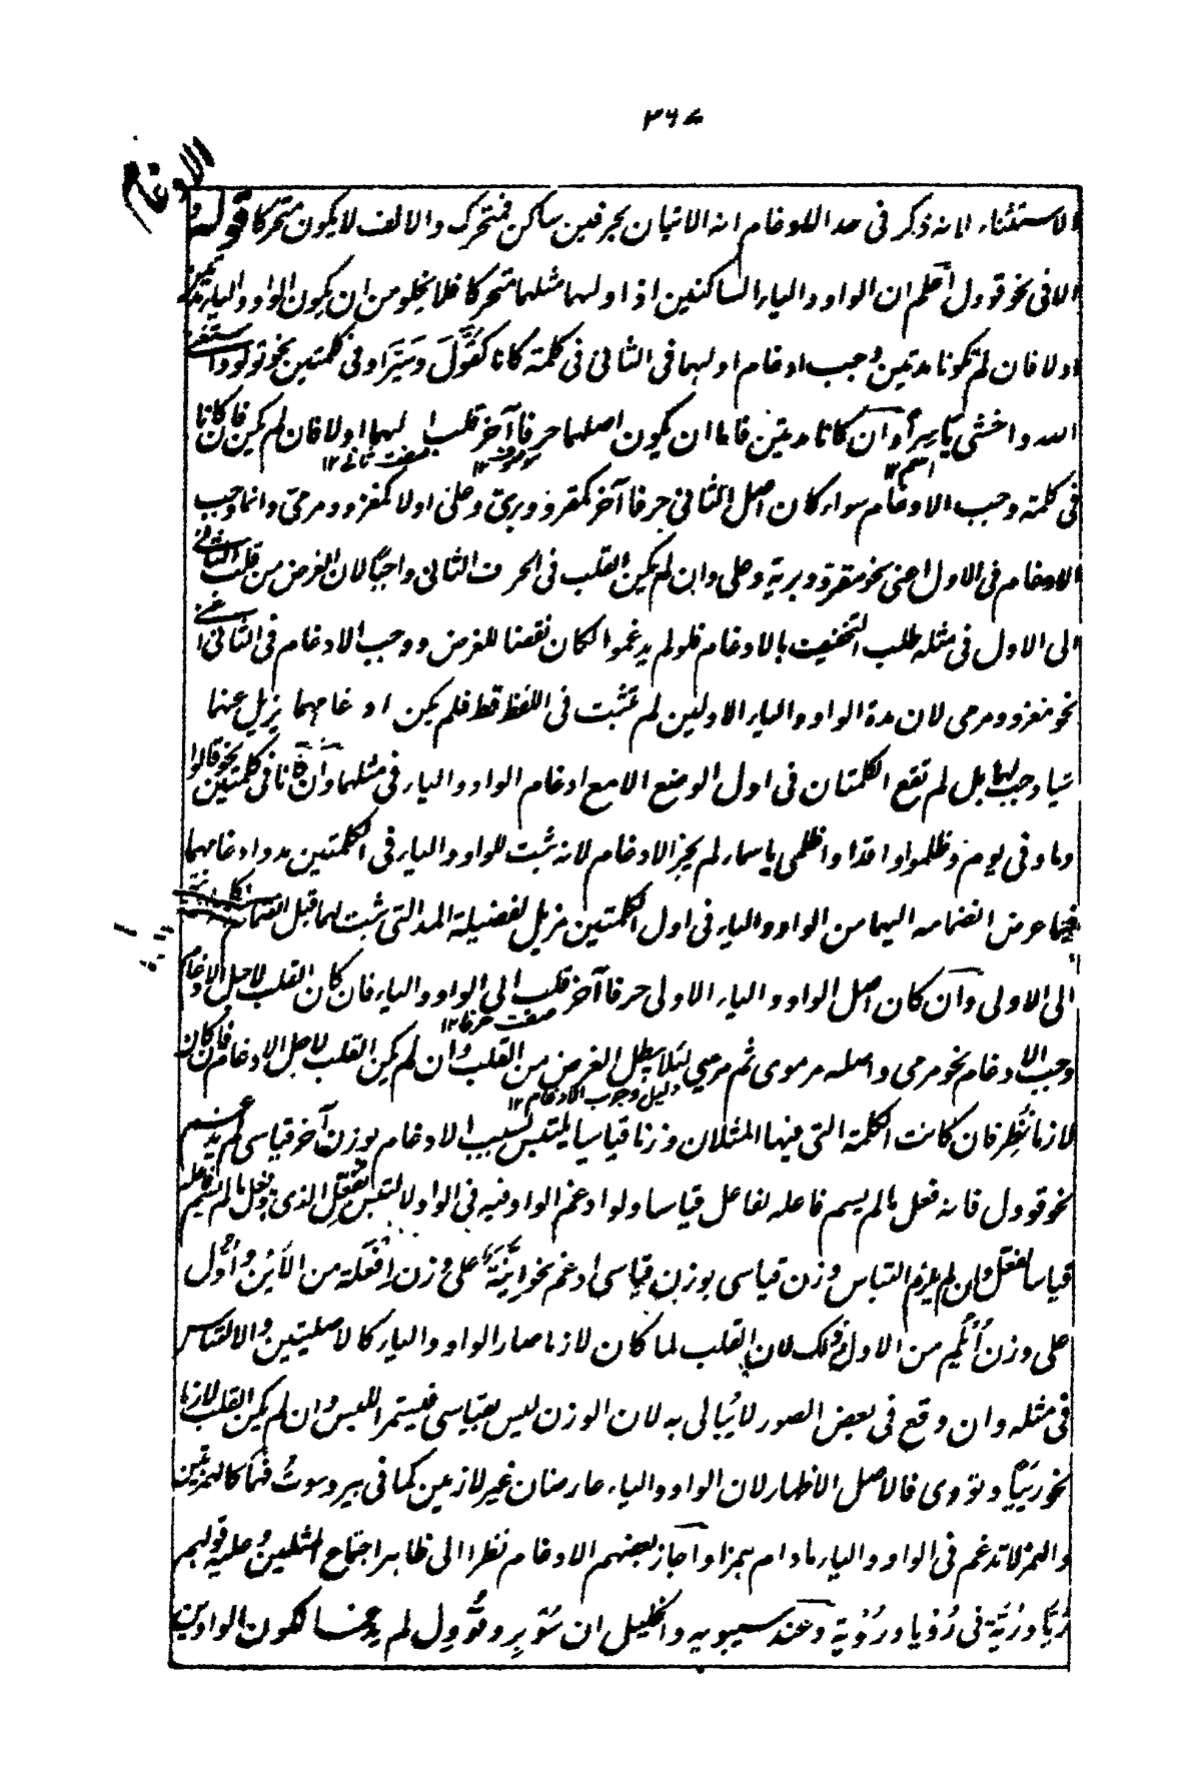 ٣٦٧
الادغام
الاستثناء لانه ذكر فى حد الادغام انه الاتيان بحرفين ساكن فمتحرك والالف لا يكون متحركا قوله
الا فى نحو قوول اعلم ان الواو والياء الساكنين اذا وليهما مثلهما متحركا فلا يخلو من ان يكون الواو والياء مدتين
اولا فان لم تكونا مدتين وجب ادغام اولهما فى الثانى فى كلمة كانا كقَوَّلَ وسَيَّرَ او فى كلمتين نحو تولوا واستغنى
الله واخشى ياسرا وان كانا مدتين فاما ان يكون اصلهما حرفا آخر قلب اليهما اولا فان لم يكن فان كانا
فى كلمة وجب الادغام سواء كان اصل الثانى حرفا آخر كمقروّ وبرىّ وعلىّ اولا كمغزوّ ومرمىّ وانما وجب
الادغام فى الاول اعنى نحو مقروة وبرية وعلى وان لم يكن القلب فى الحرف الثانى واجبًا لان الغرض من قلب الثانى
الى الاول فى مثله طلب التخفيف بالادغام فلو لم يدغموا لكان نقضا للغرض ووجب الادغام فى الثانى اعنى
نحو مغزوّ ومرمى لان مدة الواو والياء الاوليين لم تثبت فى اللفظ قط فلم يكن ادغامهما يزيل عنها
شيا وجب لهما بل لم تقع الكلمتان فى اول الوضع الا مع ادغام الواو والياء فى مثلهما وان كانا فى كلمتين نحو قالوا
وما وفى يوم وظلموا واقدا واظلمى ياسار لم يجز الادغام لانه ثبت للواو والياء فى الكلمتين مد وادغامهما
فيما عرض انضمامه اليهما من الواو والياء فى اول الكلمتين مزيل لفضيلة المد التى ثبت لهما قبل انضمام الكلمة الثانية
الى الاولى وان كان اصل الواو والياء الاولى حرفا آخر قلب الى الواو والياء فان كان القلب لاجل الادغام
وجب الادغام نحو مرمى واصله مرموى ثم مرميى لئلا يبطل الغرض من القلب وان لم يكن القلب لاجل الادغام فان كان
لازما نُظِر فان كانت الكلمة التى فيها المثلان وزنا قياسيا يلتبس بسبب الادغام بوزن آخر قياسى لم يدغم
نحو قوول فانه فعل ما لم يسم فاعله لفاعل قياسا ولو ادغم الواو فيه فى الواو لالتبس بفُعِّل الذى هو فعل ما لم يسم فاعله
قياسا لفعّل وان لم يلزم التباس وزن قياسى بوزن قياسى ادغم نحو اِيَّنَة على وزن اِفْعَلة من الاَيْن واُوُّل
على وزن اُبْلُم من الاول وذلك لان القلب لما كان لازما صار الواو والياء كالاصليتين والالتباس
فى مثله وان وقع فى بعض الصور لا يُبالى به لان الوزن ليس بقياسى فيستمر اللبس وان لم يكن القلب لازما
نحو رِيْيًا وتووى فالاصل الاظهار لان الواو والياء عارضتان غير لازمين كما فى بير وسوت فهما كالهمزتين
والهمز لا تدغم فى الواو والياء ما دام همزا واجاز بعضهم الادغام نظرا الى ظاهر اجتماع المثلين وعليه قولهم
رُيَّا ورُيَّة فى رُؤيا ورُؤية وعند سيبويه والخليل ان سُوْيِر وقُوْوِل لم يدغما لكون الواوين
اسم ١٢
موصوف ١٢
صفت ثانى ١٢
صفت حرفا ١٢
دليل وجوب الادغام ١٢